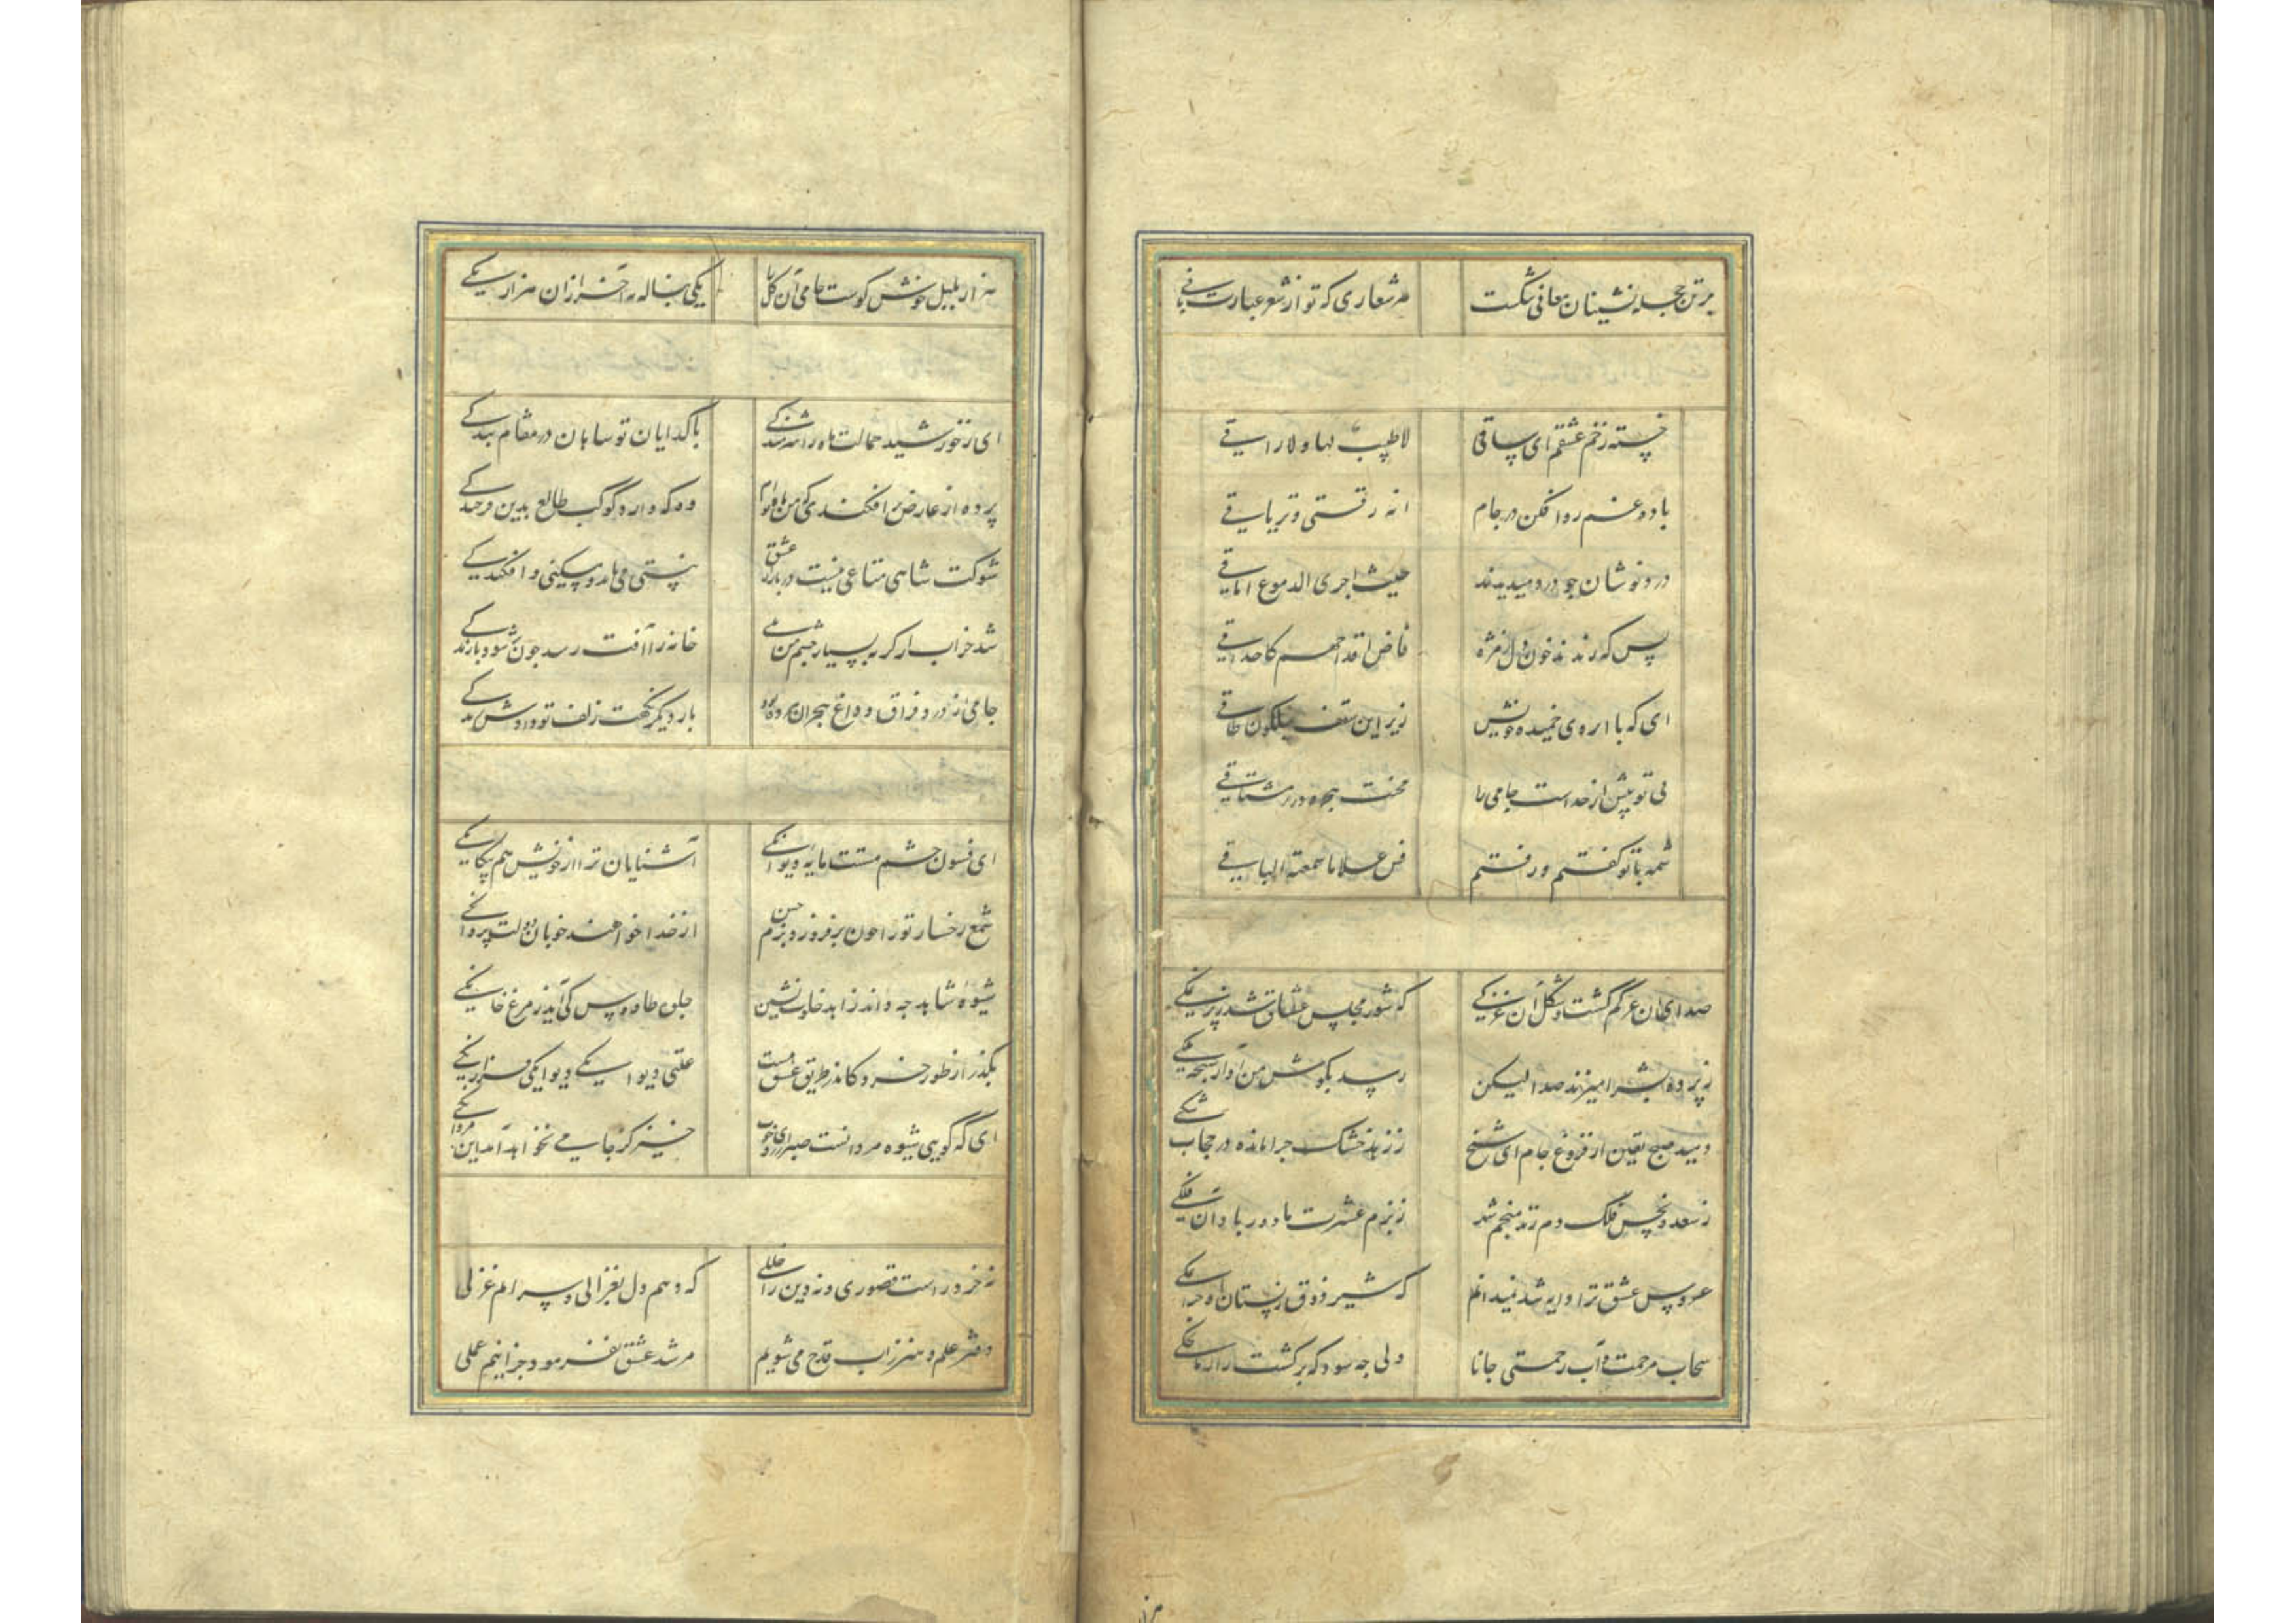 برتن حجله نشینان معانی شکست هر شعاری که تو از شعر عبارت بافی
خسته زخم عشقم ای ساقی لا طبیب لها ولا راقی
باده غم روا فکن در جام انه رقیتی و تریاقی
درد نوشان جو درد میدیدند حیث اجری الدموع اماقی
پس که راندند خون دل از مژه فاض اقداحهم کاحداقی
ای که با ابروی خمیده خویش زیر این سقف نیلگون طاقی
بی تو بیش از خداست جامی را محنت هجر و درد مشتاقی
شمه با تو گفتم و رفتم قس علی ما سمعته الباقی
صدای آن گشت و شکل آن که شور مجلس عشاق شد
زپرده بشر امیزند صدا لیکن رسید بگوش من آواز
دمید صبح یقین از فروغ جام ای شیخ ز زهد خشک چرا مانده در حجاب شکی
ز سعد و نحس فلک دم زند منجم شهر ز بزم عشرت ما دور باد آن فلکی
عروس عشق ترا دایه شد نمیدانم که شیر ذوق ز پستان او
سحاب مرحمت و آب رحمتی جانا ولی جه سود که بر کشت
هزار
هزار بلبل خوش گوست جامی آن گل را یکی بناله به آخر ازان هزار یکی
ای ز خورشید جمالت ماه را شرمندگی با گدایان تو شاهان در مقام بندگی
پرده از عارض بر افکندی که من ماه توام وه که دارد کوکب طالع بدین فرخندگی
شوکت شاهی متاعی نیست در بازار عشق نیستی می باید و مسکینی و افکندگی
شد خراب از گریه بسیار چشم من بلی خانه را آفت رسد جون شود بارندگی
جامی از درد فراق و داغ هجران مرده بود بار دیگر نکهت زلف تو دادش زندگی
ای فسون چشم مستت مایه دیوانگی آشنایان ترا از خویش هم بیگانگی
شمع رخسار تو را جون بر فروزد بزم حسن از خدا خواهند خوبان دولت پروانگی
شیوه شاهد جه داند زاهد خلوت نشین جلوه طاوس کی آید ز مرغ خانگی
بگذر از طور خرد کاندر طریق عشق هست عقل دیوانگی دیوانگی فرزانگی
ای که گویی شیوه مردانست صبر از روی خوب خیز کز جامی نخواهد آمد این مردانگی
نه خرد راست قصوری و نه دین را خللی که دهم دل بغزالی و سرایم غزلی
دفتر علم و هنر ز آب قدح می شویم مرشد عشق نفرمود جز اینم عملی